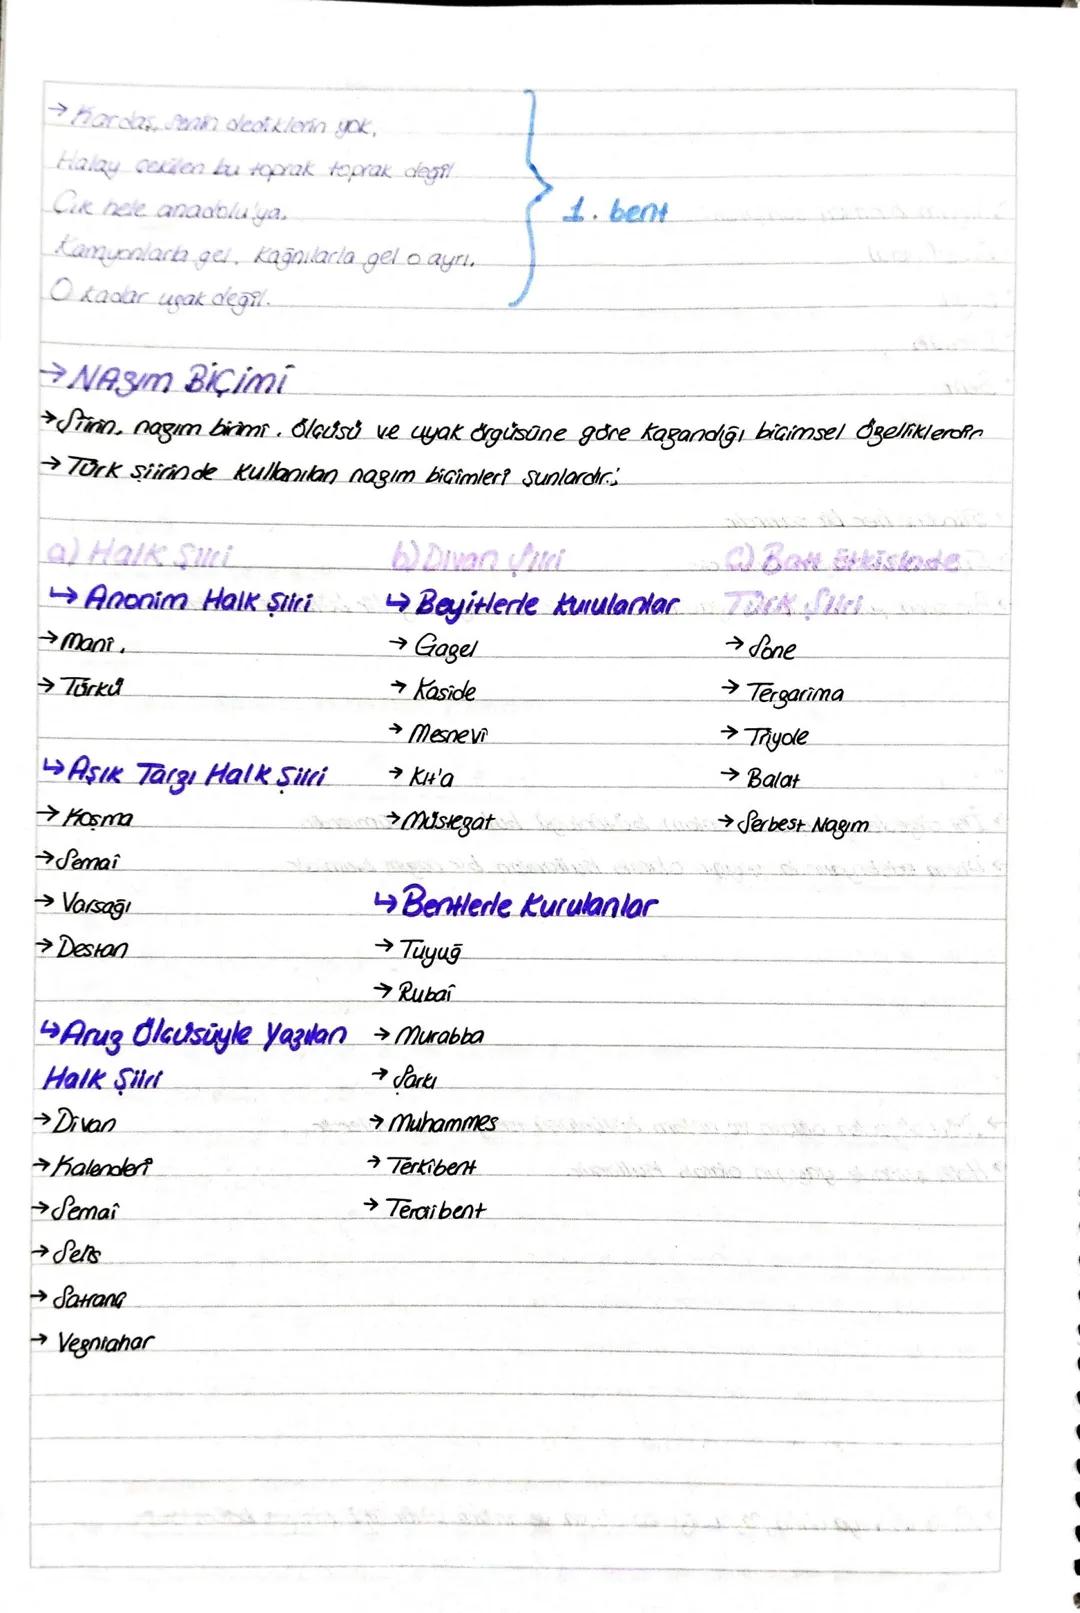 → Kardaş, senin dediklerin yok,
Halay çekilen bu toprak toprak değil
Çık hele anadolu'ya,
Kamyonlarla gel, kağnılarla gel o ayrı,
O kadar uzak değil.
1. bent
→ NAZIM BİÇİMİ
→ Şiirin, nazım birimi, ölçüsü ve uyak örgüsüne göre kazandığı biçimsel özelliklerdir
→ Türk şiirinde kullanılan nazım biçimleri şunlardır:;
a) Halk Şiiri
↳ Anonim Halk Şiiri
→ Mani,
→ Türkü
↳ Aşık Tarzı Halk Şiiri
→ Koşma
→ Semaî
→ Varsağı
→ Destan
↳ Aruz Ölçüsüyle Yazılan
Halk Şiiri
→ Divan
→ Kalenderî
→ Semaî
→ Selis
→ Satranç
→ Vezniahar
b) Divan Şiiri
↳ Beyitlerle Kurulanlar
→ Gazel
→ Kaside
→ Mesnevî
→ Kıt'a
→ Müstezat
↳ Bentlerle Kurulanlar
→ Tuyuğ
→ Rubaî
→ Murabba
→ Şarkı
→ Muhammes
→ Terkibent
→ Tercibent
c) Batı Etkisinde
Türk Şiiri
→ Sone
→ Terzarima
→ Triyole
→ Balat
→ Serbest Nazım